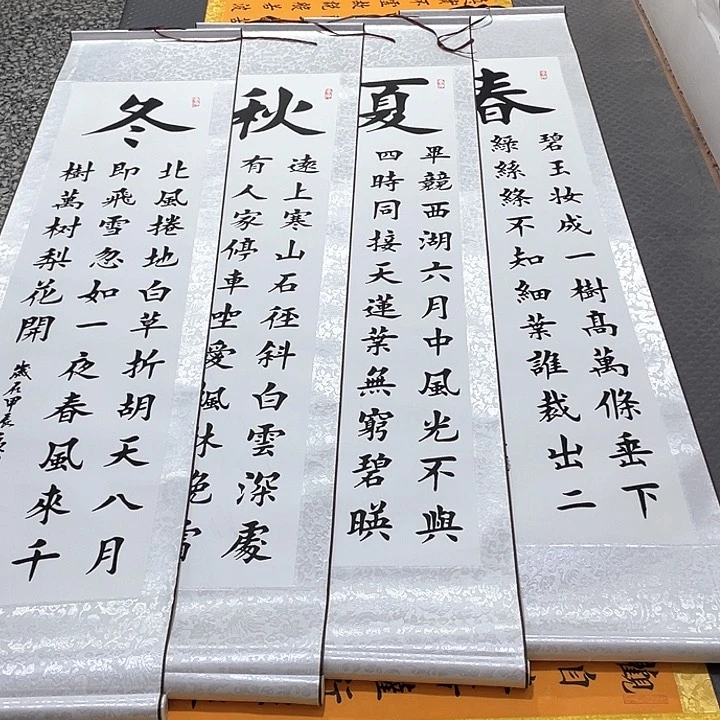 春
碧玉妆成一樹髙萬條垂下
緑絲絛不知細葉誰裁出二
夏
畢競西湖六月中風光不與
四時同接天蓮葉無窮碧暎
秋
遠上寒山石徑斜白雲深處
有人家停車坐愛楓林晚霜
冬
北風捲地白草折胡天八月
即飛雪忽如一夜春風來千
樹萬树梨花開
歲在甲辰
觀自